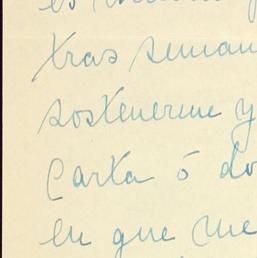 es
tras seman
sostenerme y
Carta ó do
en que me